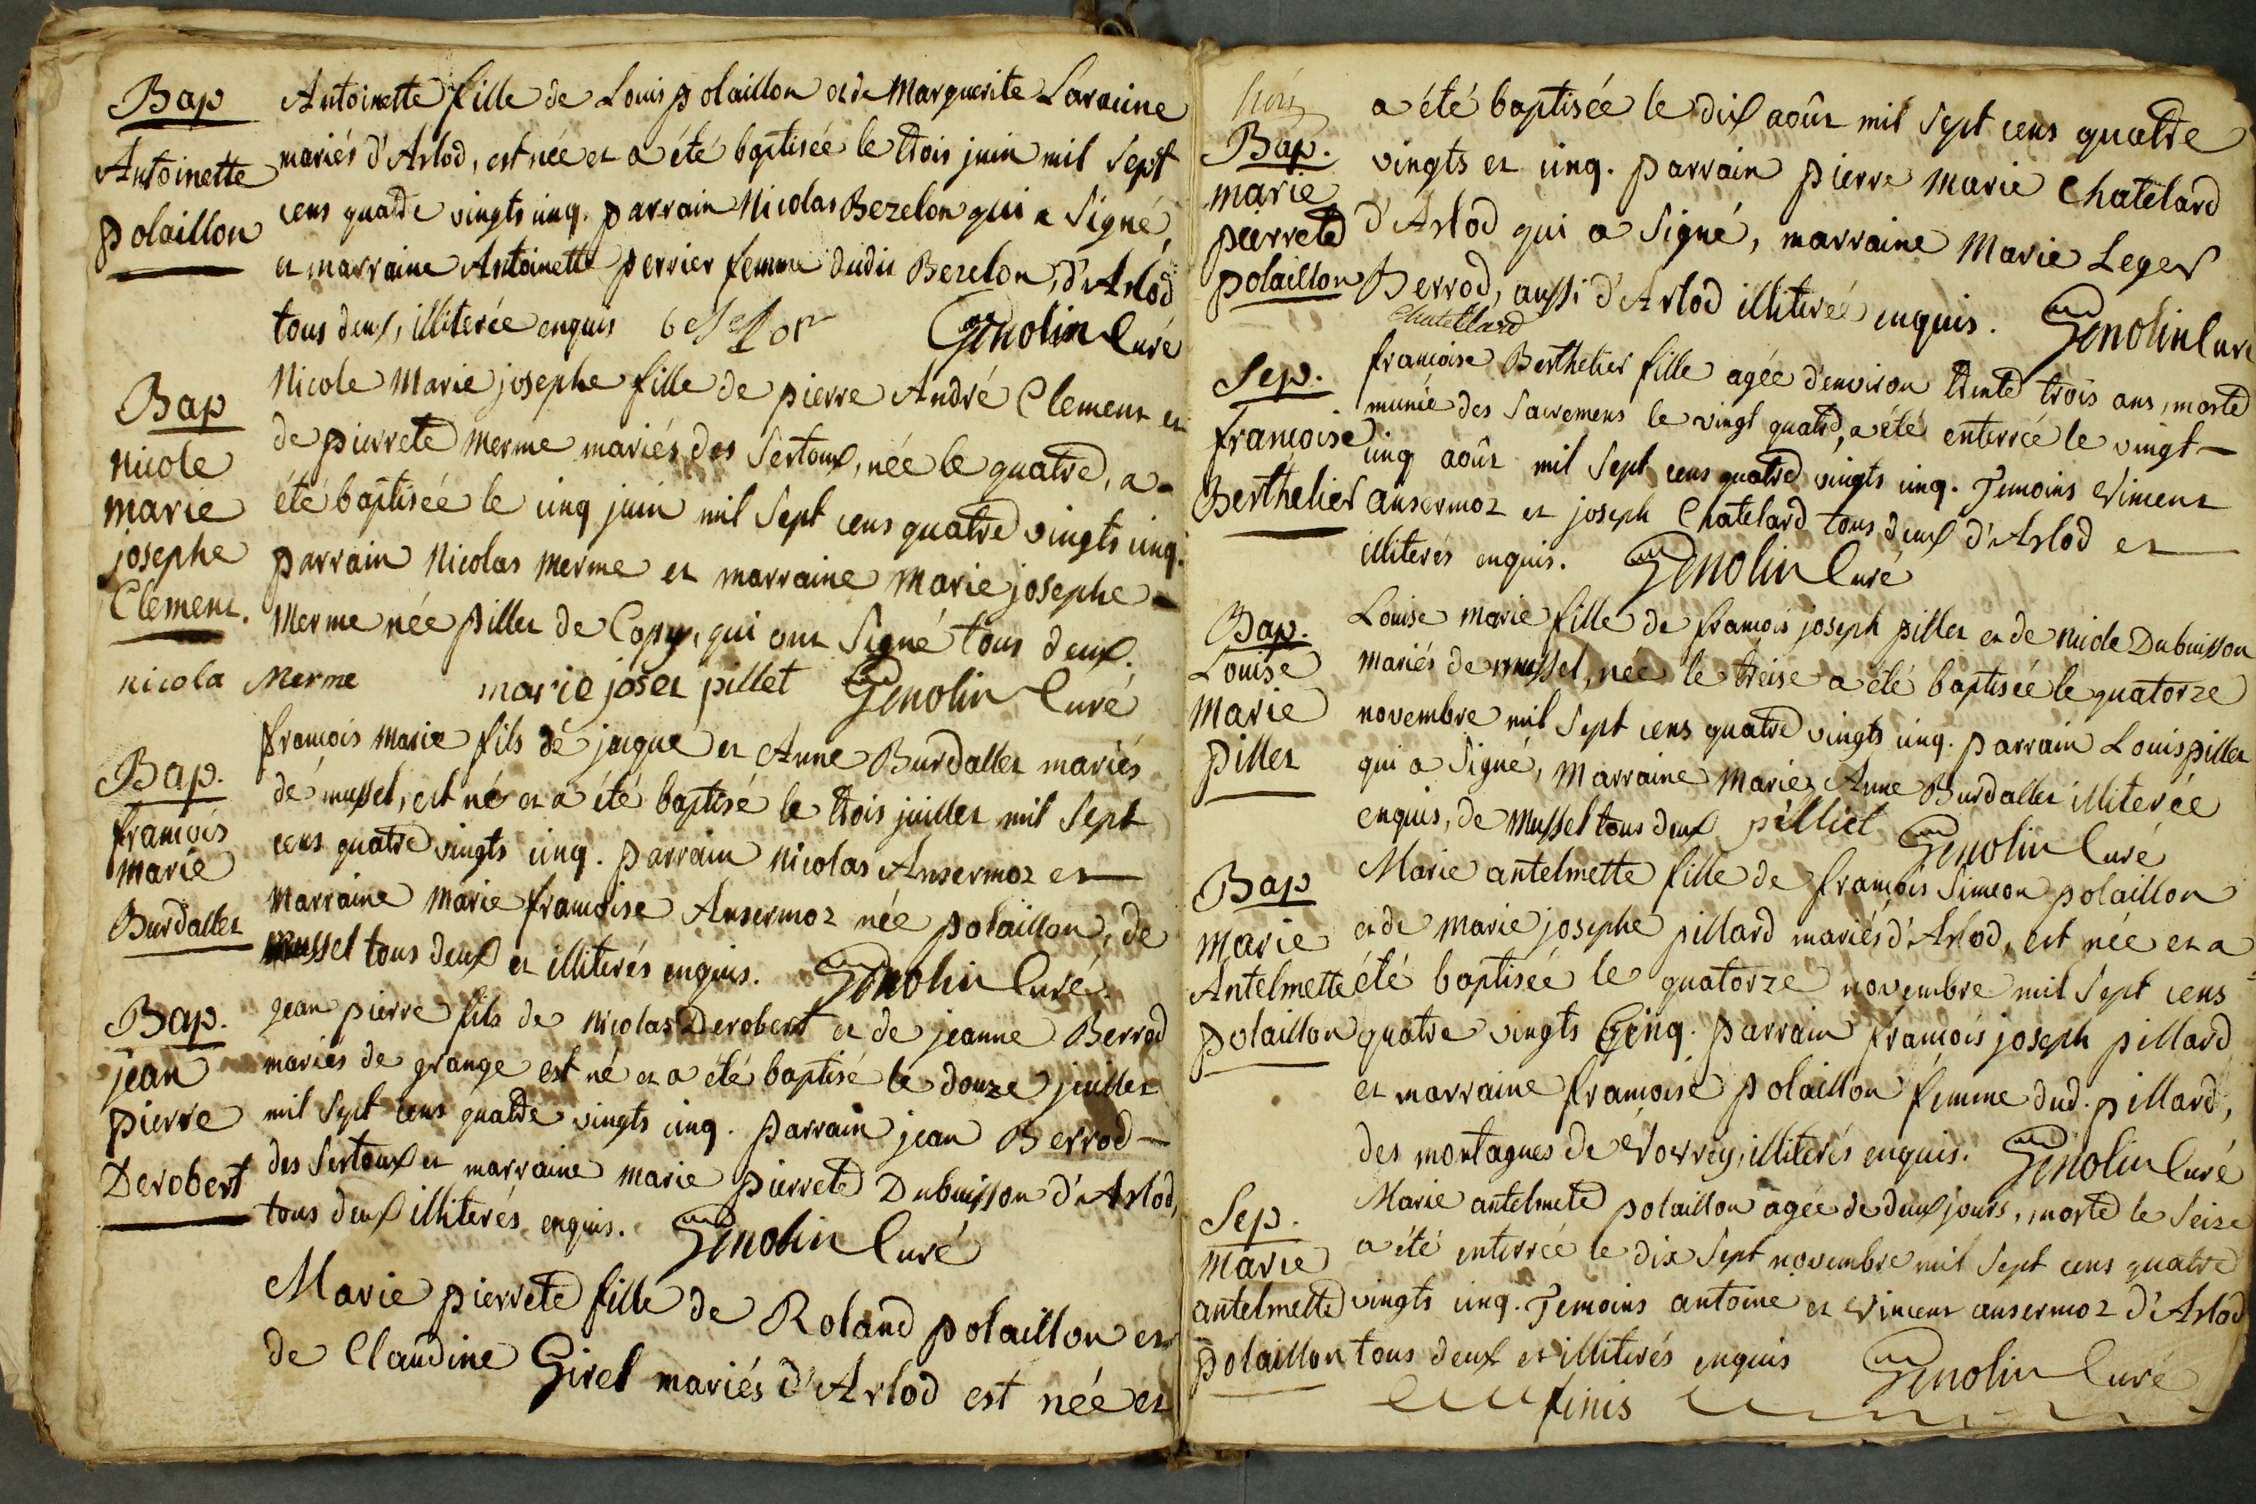 Bap
Antoinette
polaillon
Antoinette fille de Louis polaillon et de Marguerite Laracine
mariés d'Arlod, est née et a été baptisée le trois juin mil sept
cens quatre vingts cinq. parrain Nicolas Bezelon qui a signé,
et marraine Antoinette perrier femme dudit Bezelon, d'Arlod
tous deux, illiterée enquis Genolin Curé
Bap
nicole
marie
josephe
Clement.
Nicole Marie josephe fille de pierre André Clement et
de pierrete Merme mariés des Sertoux, née le quatre, a
été baptisée le cinq juin mil sept cens quatre vingts cinq.
parrain Nicolas Merme et marraine Marie josephe
Merme née pillet de Copy, qui ont signé tous deux.
nicola Merme marie joset pillet Genolin Curé
Bap.
françois
marie
Burdallet
françois Marie fils de jacque et Anne Burdallet mariés
de mussel, est né et a été baptisé le trois juillet mil sept
cens quatre vingts cinq. parrain Nicolas Ansermoz et
Marraine Marie françoise Ansermoz née polaillon, de
Mussel tous deux et illiterés enquis. Genolin Curé
Bap.
jean
pierre
Derobert
jean pierre fils de Nicolas Derobert et de jeanne Berrod
mariés de grange est né et a été baptisé le douze juillet
mil sept cens quatre vingts cinq. parrain jean Berrod
des Sertoux et marraine marie pierrete Dubuisson d'Arlod,
tous deux illiterés enquis. Genolin Curé
Marie pierrete fille de Roland polaillon et
de Claudine Girel mariés d'Arlod est née et
Bap.
marie
pierrete
polaillon
a été baptisée le dix août mil sept cens quatre
vingts et cinq. parrain pierre Marie Chatelard
d'Arlod qui a signé, marraine Marie Leger
Berrod, aussi d'Arlod illiterée enquis. Genolin Curé
Chatellard
Sep.
françoise
Berthelier
françoise Berthelier fille agée d'environ trente trois ans, morte
munie des sacremens le vingt quatre, a été enterrée le vingt
cinq août mil sept cens quatre vingts cinq. Temoins Vincent
ansermoz et joseph Chatelard tous deux d'Arlod et
illiterés enquis. Genolin Curé
Bap.
Louise
Marie
pillet
Louise Marie fille de françois joseph pillet et de nicole Dubuisson
mariés de mussel, née le treise a été baptisée le quatorze
novembre mil sept cens quatre vingts cinq. parrain Louis pillet
qui a signé, Marraine Marie Anne Burdallet illiterée
enquis, de Mussel tous deux pilliet Genolin Curé
Bap
Marie
Antelmette
polaillon
Marie antelmette fille de françois Simeon polaillon
et de Marie josephe pillard mariés d'Arlod, est née et a
été baptisée le quatorze novembre mil sept cens
quatre vingts Cinq. parrain françois joseph pillard
et marraine françoise polaillon femme dud. pillard,
des montagnes de Vovray, illiterés enquis. Genolin Curé
Sep.
marie
antelmette
polaillon
Marie antelmete polaillon agée de deux jours, morte le seize
a été enterrée le dix sept novembre mil sept cens quatre
vingts cinq. Temoins antoine et Vincent ansermoz d'Arlod
tous deux et illiterés enquis Genolin Curé
finis